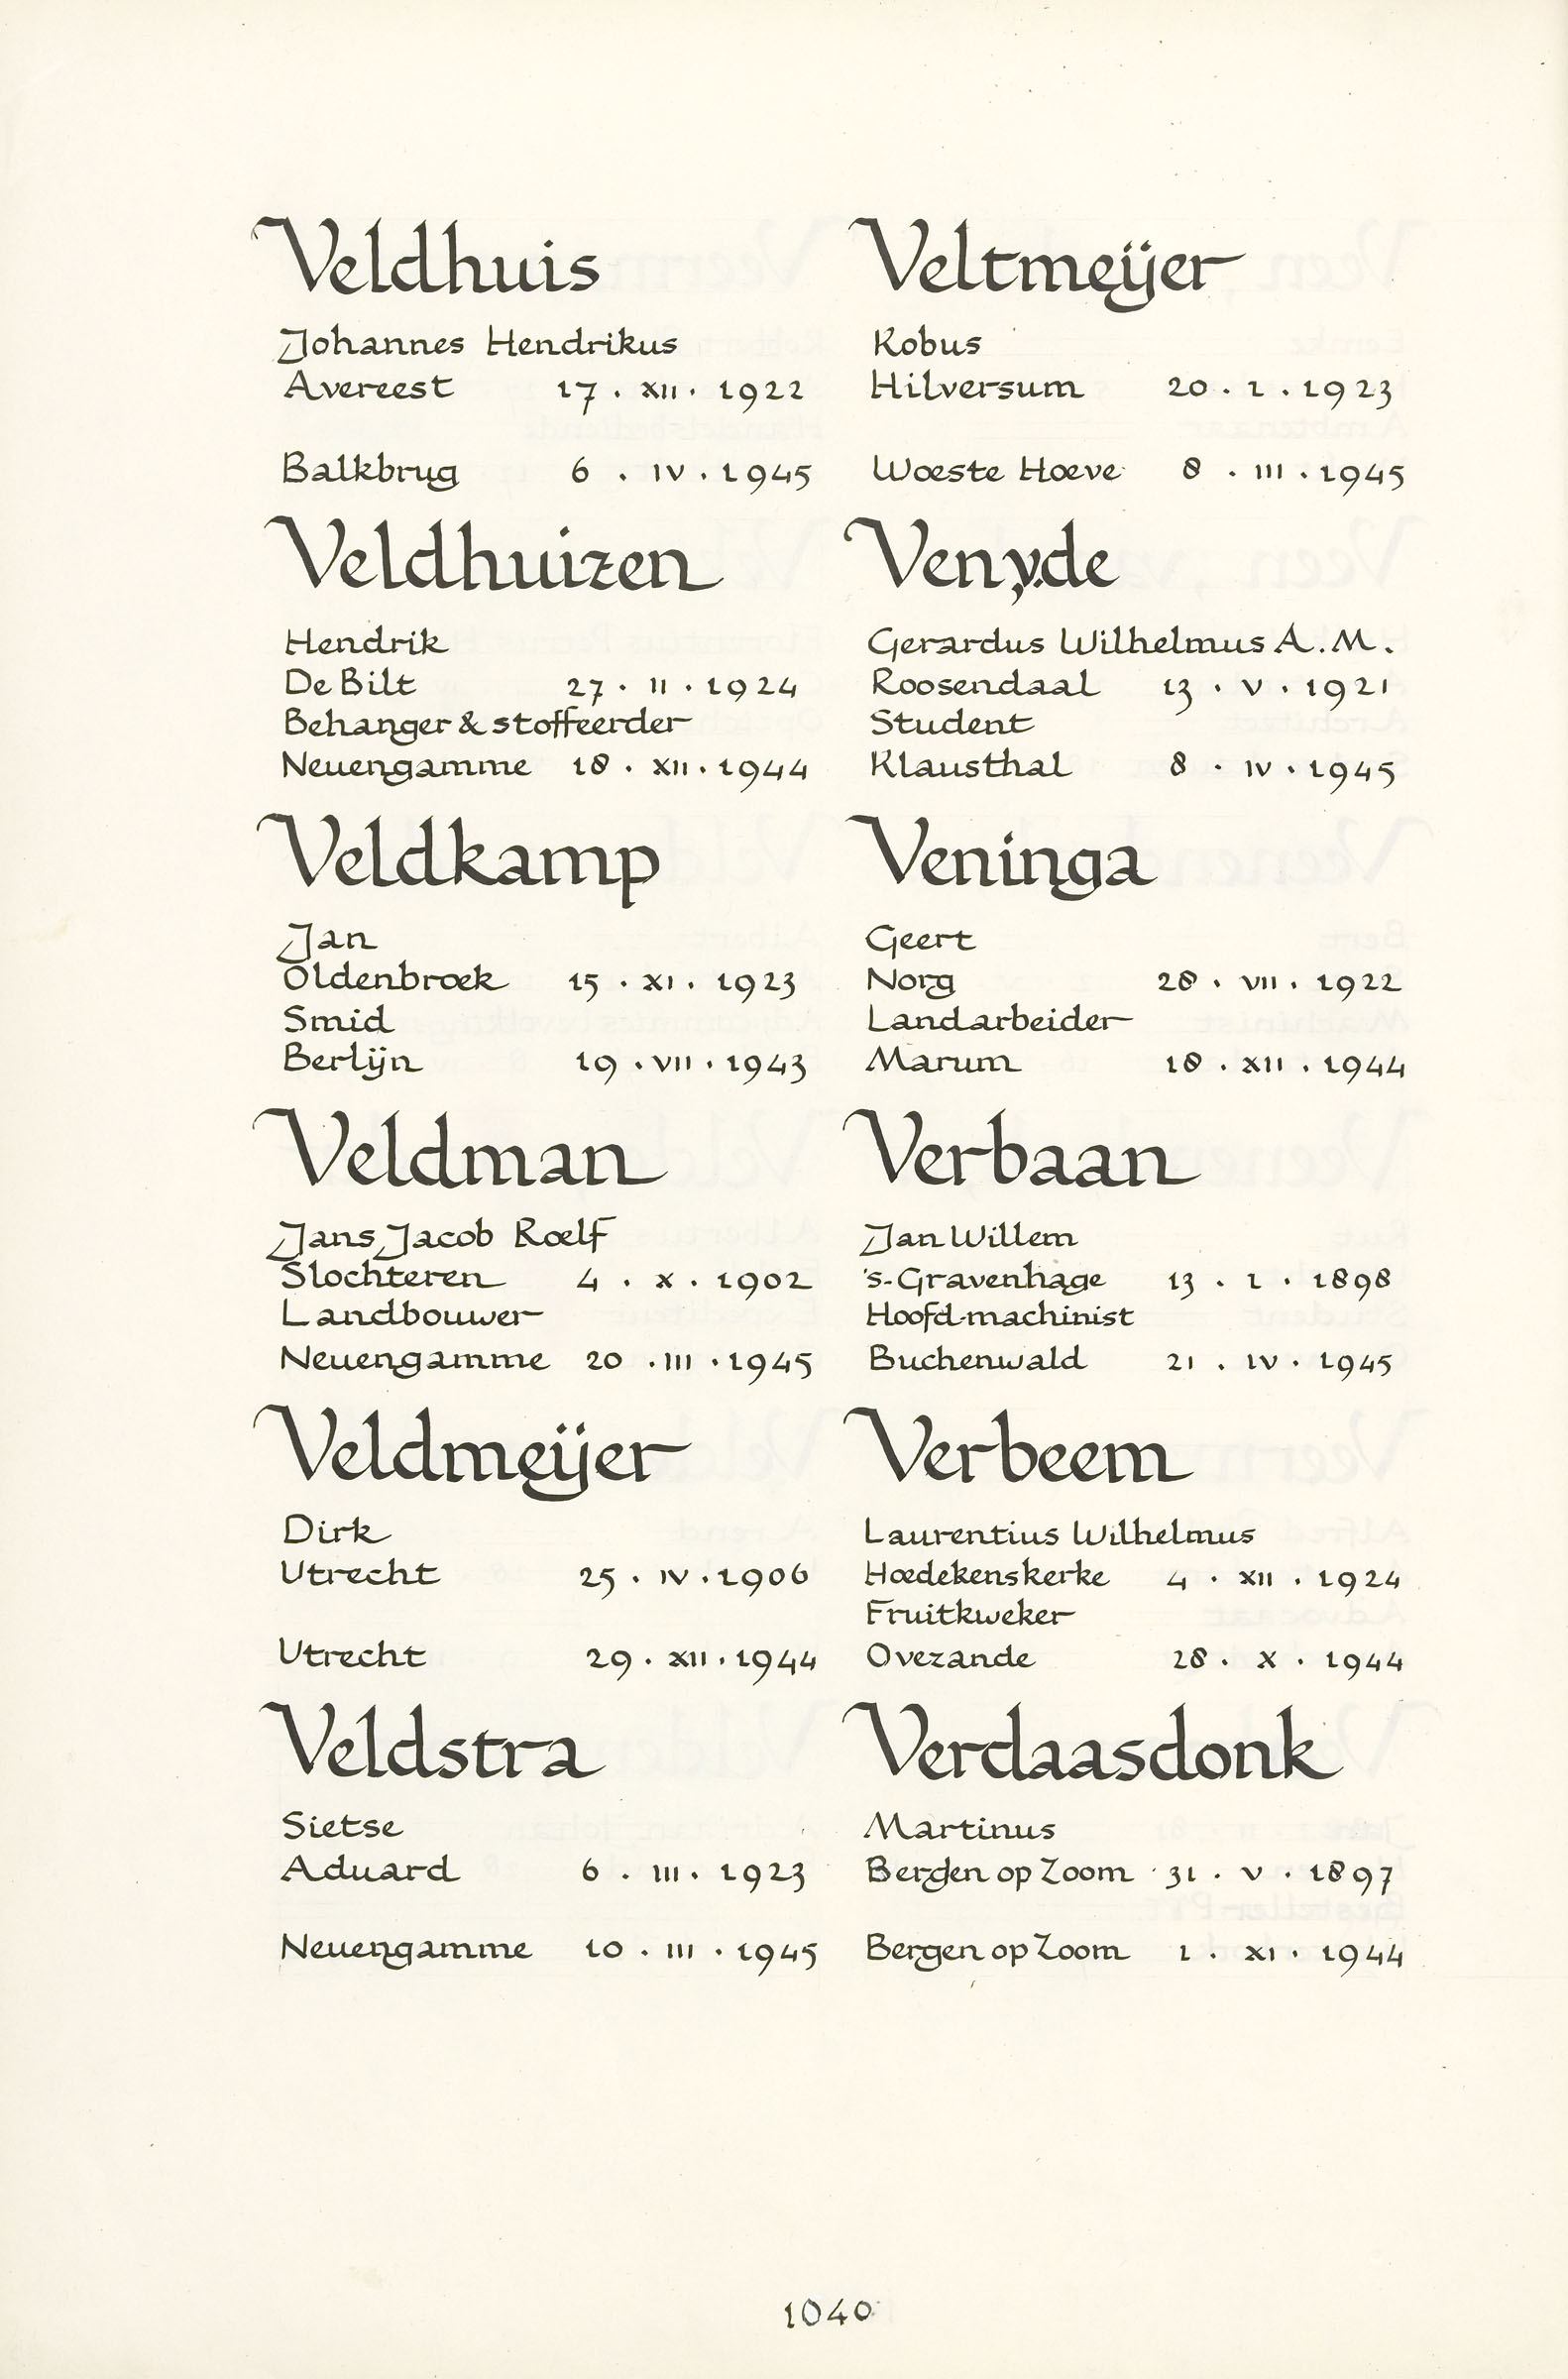 Veldhuis
Johannes Hendrikus
Avereest 17 . XII . 1922
Balkbrug 6 . IV . 1945
Veldhuizen
Hendrik
De Bilt 27 . II . 1924
Behanger & stoffeerder
Neuengamme 18 . XII . 1944
Veldkamp
Jan
Oldenbroek 15 . XI . 1923
Smid
Berlijn 19 . VII . 1943
Veldman
Jans Jacob Roelf
Slochteren 4 . X . 1902
Landbouwer
Neuengamme 20 . III . 1945
Veldmeijer
Dirk
Utrecht 25 . IV . 1906
Utrecht 29 . XII . 1944
Veldstra
Sietse
Aduard 6 . III . 1923
Neuengamme 10 . III . 1945
Veltmeijer
Kobus
Hilversum 20 . I . 1923
Woeste Hoeve 8 . III . 1945
Ven, v.de
Gerardus Wilhelmus A. M.
Roosendaal 13 . V . 1921
Student
Klausthal 8 . IV . 1945
Veninga
Geert
Norg 28 . VII . 1922
Landarbeider
Marum 18 . XII . 1944
Verbaan
Jan Willem
's-Gravenhage 13 . I . 1898
Hoofd-machinist
Buchenwald 21 . IV . 1945
Verbeem
Laurentius Wilhelmus
Hoedekenskerke 4 . XII . 1924
Fruitkweker
Ovezande 28 . X . 1944
Verdaasdonk
Martinus
Bergen op Zoom 31 . V . 1897
Bergen op Zoom 1 . XI . 1944
1040